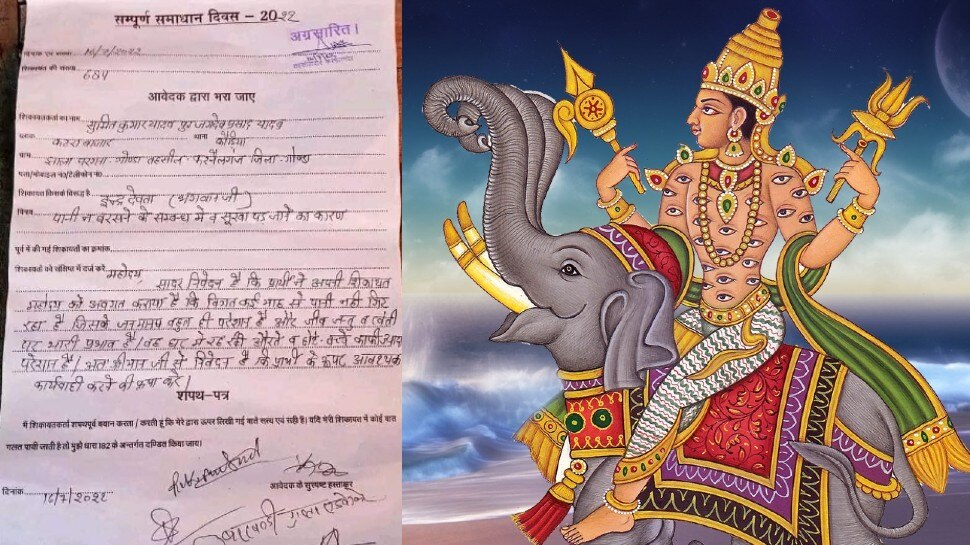 सम्पूर्ण समाधान दिवस – 2022
अग्रसारित।
दिनांक एवं समय 16/7/2022
शिकायत की संख्या 684
आवेदक द्वारा भरा जाए
शिकायतकर्ता का नाम सुमित कुमार यादव पुत्र यादव
थाना कौड़िया
ग्राम झाला परगना गोण्डा तहसील- करनैलगंज जिला-गोण्डा
पता/मोबाइल नं0/टेलीफोन नं0
शिकायत किसके विरूद्ध है इन्द्र देवता (भगवान जी)
विषय पानी न बरसने के सम्बन्ध में व सूखा पड़ जाने का कारण
पूर्व में की गई शिकायतों का क्रमांक
शिकायतों को संक्षिप्त में दर्ज करें महोदय,
सादर निवेदन है कि प्रार्थी ने अपनी शिकायत
महोदय को अवगत कराया है कि विगत कई माह से पानी नहीं गिर
रहा है जिसके जनमानस बहुत ही परेशान है और जीव जन्तु व खेती
पर भारी प्रभाव है/ घर में रह रही औरते व छोटे बच्चे काफी ज्यादा
परेशान है/ अतः श्रीमान जी से निवेदन है कि प्रार्थी के ऊपर आवश्यक
कार्यवाही करने की कृपा करें/
शपथ-पत्र
में शिकायतकर्ता शपथपूर्व बयान करता / करती हूं कि मेरे द्वारा ऊपर लिखी गई बातें सत्य एवं सही है। यदि मेरी शिकायत में कोई बात
गलत पायी जाती है तो मुझे धारा 182 के अन्तर्गत दण्डित किया जाय।
दिनांक 16/7/2022
आवेदक के सुस्पष्ट हस्ताक्षर